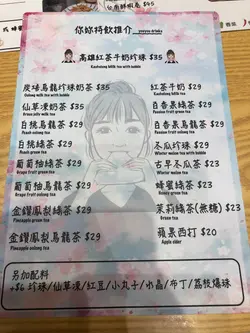 你妳特飲推介 youyou drinks
高雄紅茶干奶珍珠 $35
Kaohsiung milk tea with bubble
炭培烏龍珍珠奶茶 $35
Oolong milk tea with bubble
仙草凍奶茶 $35
Grass jelly milk tea
白桃烏龍茶 $29
Peach oolong tea
白桃綠茶 $29
Peach green tea
葡萄柚綠茶 $29
Grape fruit green tea
葡萄柚烏龍茶 $29
Grape fruit oolong tea
金鑽鳳梨綠茶 $29
Pineapple green tea
金鑽鳳梨烏龍茶 $29
Pineapple oolong tea
紅茶干奶 $29
Kaohsiung milk tea
百香果綠茶 $29
Passion green tea
百香果烏龍茶 $29
Passion oolong tea
冬瓜珍珠 $29
Winter melon tea with bubble
古早冬瓜茶 $23
Winter melon tea
蜂蜜綠茶 $23
Honey green tea
茉莉綠茶(無糖) $23
Jasmine green tea
蘋果西打 $20
Apple cider
另加配料
+$6 珍珠/仙草凍/紅豆/小丸子/水晶/布丁/荔枝爆珠